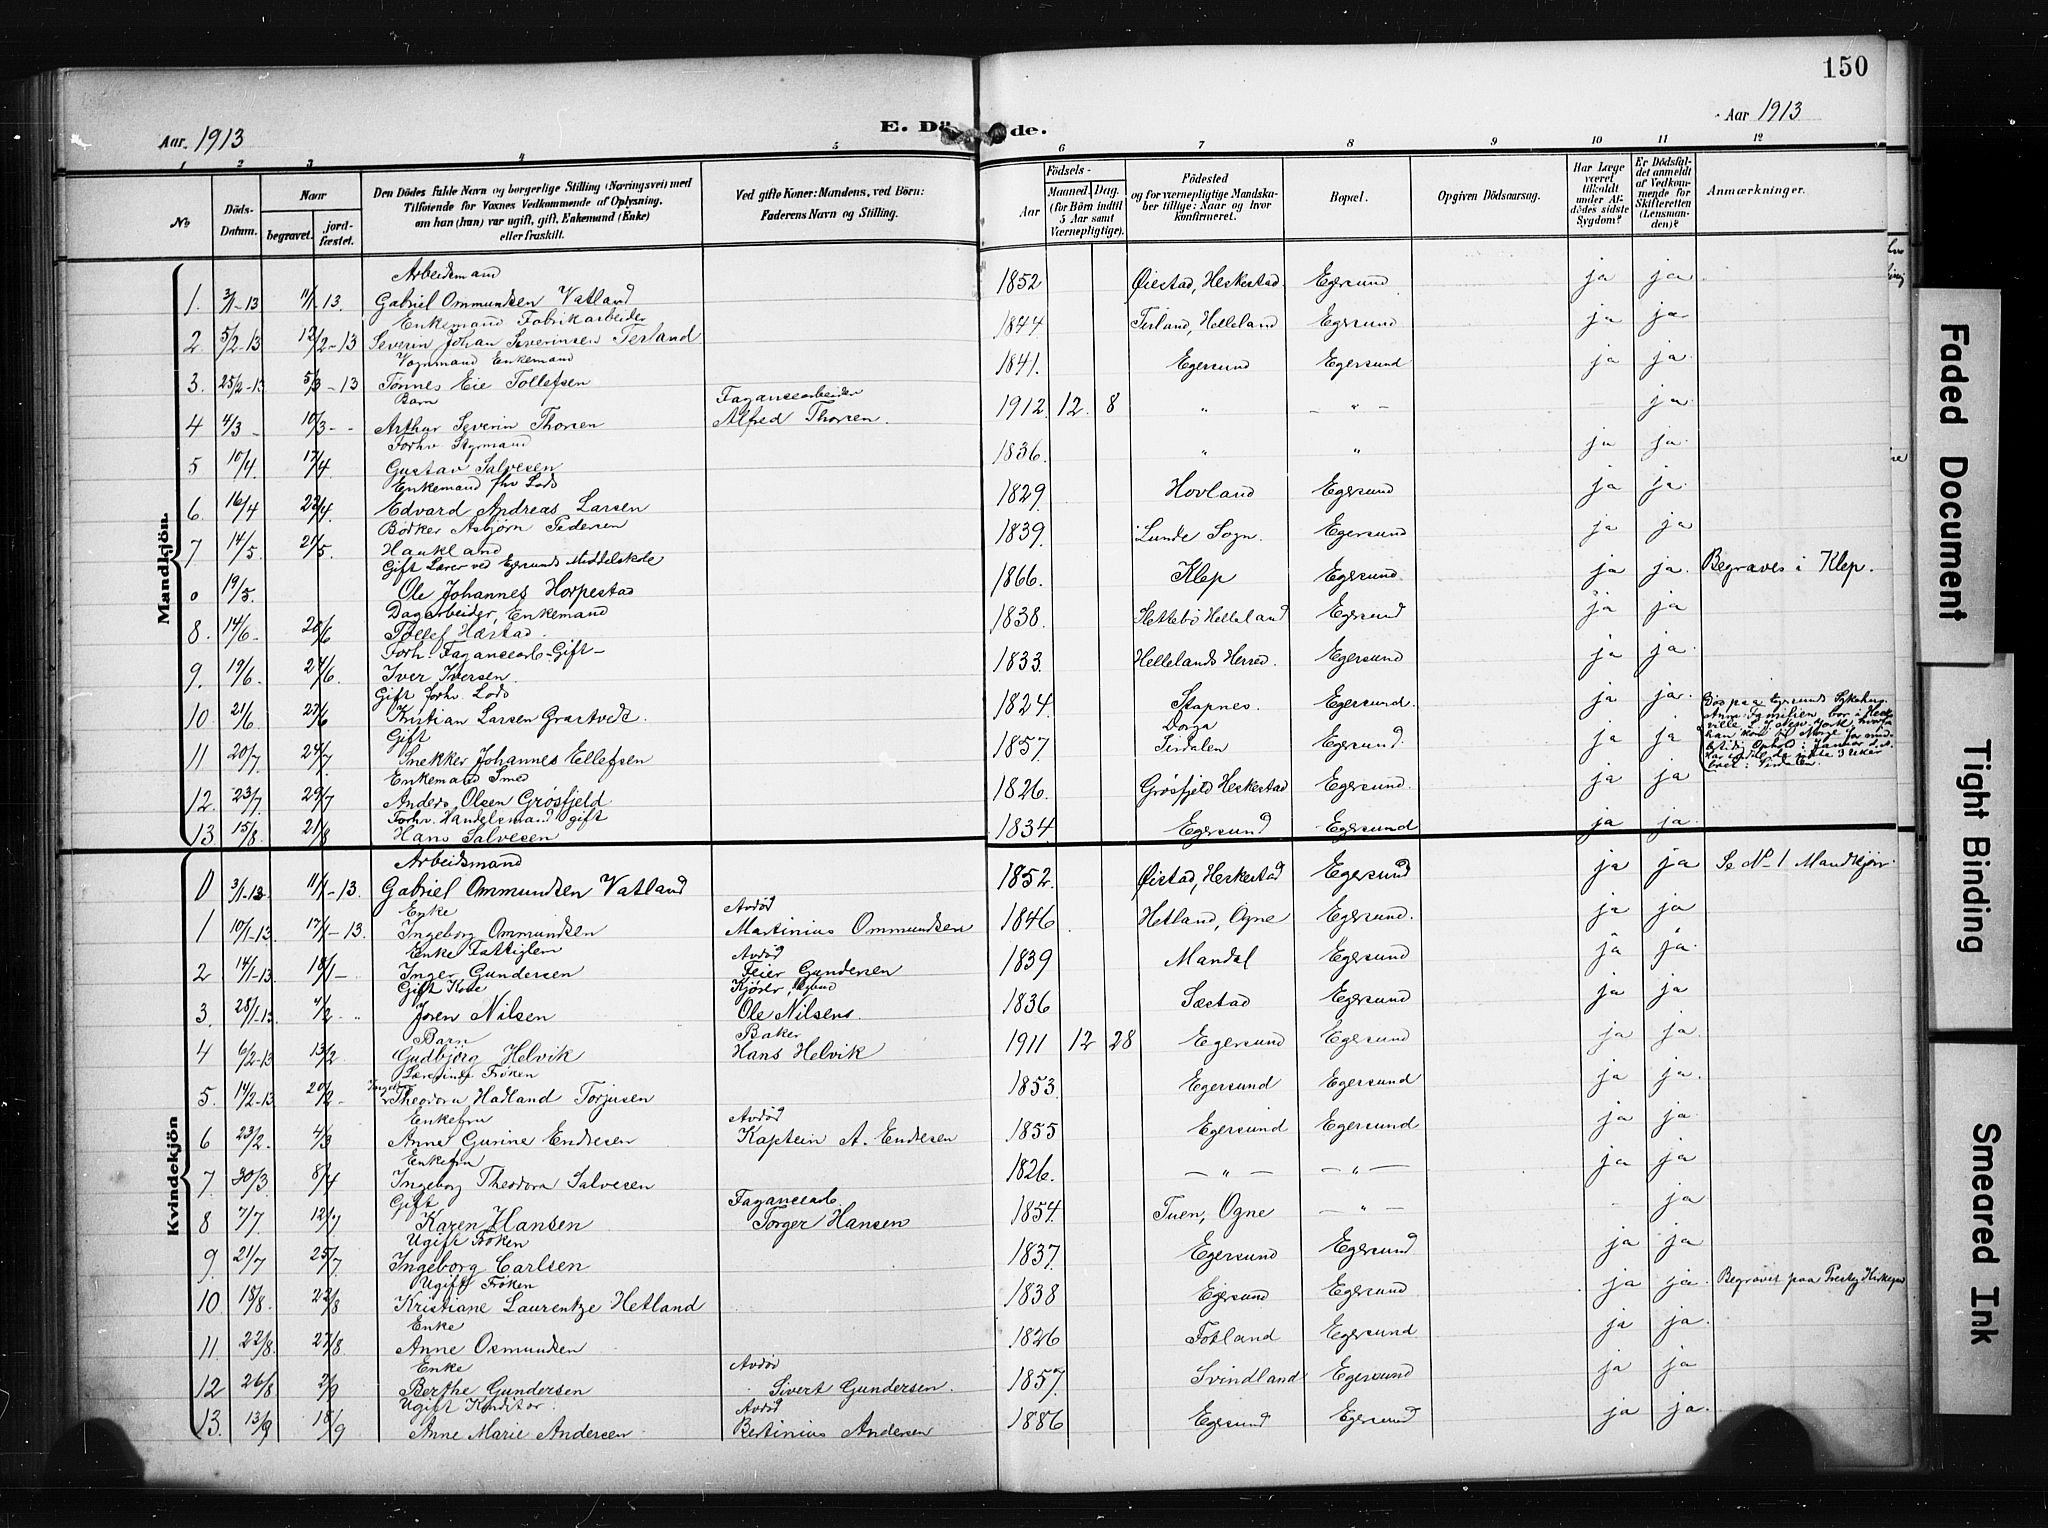 150
E. Dö de.
Aar 1913
Aar 1913
1 2 3 4 5 6 7 8 9 10 11 12
No
Döds-Datum.
Naar
begravet.
jord-fæstet.
Den Dödes fulde Navn og borgerlige Stilling (Næringsvei) med
Tilföiende for Voxnes Vedkommende af Oplysning,
om han (hun) var ugift, gift, Enkemand (Enke)
eller fraskilt.
Ved gifte Koner: Mandens, ved Börn:
Faderens Navn og Stilling.
Födsels-
Aar
Maaned. Dag.
(for Börn indtil
5 Aar samt
Værnepligtige).
Födested
og for værnepligtige Mandska-
ber tillige: Naar og hvor
konfirmeret.
Bopæl.
Opgiven Dödsaarsag.
Har Læge
været
tilkaldt
under Af-
dödes sidste
Sygdom?
Er Dödsfal-
det anmeldt
af Vedkom-
mende for
Skifteretten
(Lensman-
den)?
Anmærkninger.
Mandkjön.
Arbeidsmand
1. 3/1-13 11/1-13 Gabriel Ommundsen Vatland 1852 Øistad, Heskestad Egersund ja ja
Enkemand Fabrikarbeider
2 5/2-13 12/2-13 Severin Johan Severinsen Tesland 1844 Tesland, Helleland Egersund ja ja
Vognmand Enkemand
3. 25/2-13 5/3-13 Tønnes Eie Tollefsen 1841. Egersund Egersund ja ja.
Barn Fagancearbeider
4 4/3 - 10/3 - - Arthur Severin Thorsen Alfred Thorsen. 1912. 12. 8 " - " - - ja.
Forhv Styrmand
5 10/4. 17/4 Gustav Salvesen 1836. " " ja ja.
Enkemand fhv Lods
6 16/4 22/4. Edvard Andreas Larsen 1829. Hovland Egersund ja ja.
Bødker Asbjørn Pedersen
7 14/5 21/5. Haukland 1839. Lunde Sogn. Egersund ja ja
Gift Lærer ved Egersunds Middelskole
0 19/5. Ole Johannes Horpestad 1866. Klep Egersund ja ja. Begraves i Klep.
Dagarbeider, Enkemand
8. 14/6. 20/6 Tollef Hæstad. 1838. Hettebø Helleland Egersund ja ja
Forh. Fagancearb - Gift -
9. 19/6 24/6. Iver Iversen 1833. Hellelands Herred. Egersund ja ja.
Gift forhv. Lods
10. 21/6 27/6 Kristian Larsen Grastveit. 1824. Stapnes. Egersund. ja ja.
Gift
11 20/7 24/7 Snekker Johannes Ellefsen 1857. Dorga Sirdalen Egersund. ja ja.
Døs paa Egersunds Sykehus.
Enkemand Smed
12. 23/7 29/7 Anders Olsen Grøsfjeld 1826. Grøsfjeld Heskestad Egersund. ja ja
Forhv. Handelsmand gift
13. 15/8. 21/8 Hans Salvesen 1834 Egersund Egersund ja ja.
Kvindekjön
Arbeidsmand
0 3/1-13. 11/1-13. Gabriel Ommundsen Vatland 1852. Øistad, Heskestad Egersund ja ja Se No 1 Mandkjøn.
Enke Avdød
1 10/1-13. 17/1-13. Ingeborg Ommundsen Martinius Ommundsen 1846 Hetland, Ogne Egersund. ja ja
Enke Fattiglem Avdød
2 14/1-13 18/1- Inger Gundersen Feier Gundersen 1839 Mandal Egersund ja ja.
Gift Kone Kjører,
3. 28/1-13. 4/2 " Joren Nilsen Ole Nilsens 1836 Sæstad Egersund ja ja
Barn Baker
4 6/2-13 13/2 Gudbjörg Helvik Hans Helvik 1911 12 28 Egersund Egersund ja ja.
Lærerinde Frøken
5. 14/2-13 20/2- Theodora Hadland Torjusen 1853. Egersund Egersund ja ja.
Enkefru Avdød
6 23/2. 4/3 Anne Gurine Endresen Kaptein A. Endresen 1855 Egersund Egersund ja ja.
Enkefru
7. 30/3. 8/4 Ingeborg Theodora Salvesen 1826. - " - - " - ja ja.
Gift Fagancearb
8 7/7. 12/7 Karen Hansen Torger Hansen 1854. Tuen, Ogne - " - - ja
Ugift Frøken
9. 21/7 25/7. Ingeborg Carlsen 1837. Egersund Egersund ja ja.
Ugift Frøken
10 18/8. 22/8 Kristiane Laurentze Hetland 1838 Egersund Egersund ja ja. Begravet paa Presteg Kirkegaard
Enke
11. 22/8. 27/8 Anne Osmundsen 1826 Fotland Egersund ja ja.
Enke Avdød
12 26/8 2/9 Berthe Gundersen Sivert Gundersen. 1857. Svindland Egersund ja ja
Ugift Konditor Avdød
13. 13/9 18/9 Anne Marie Andersen Bertinius Andersen 1886 Egersund Egersund ja ja.
Faded Document
Tight Binding
Smeared Ink